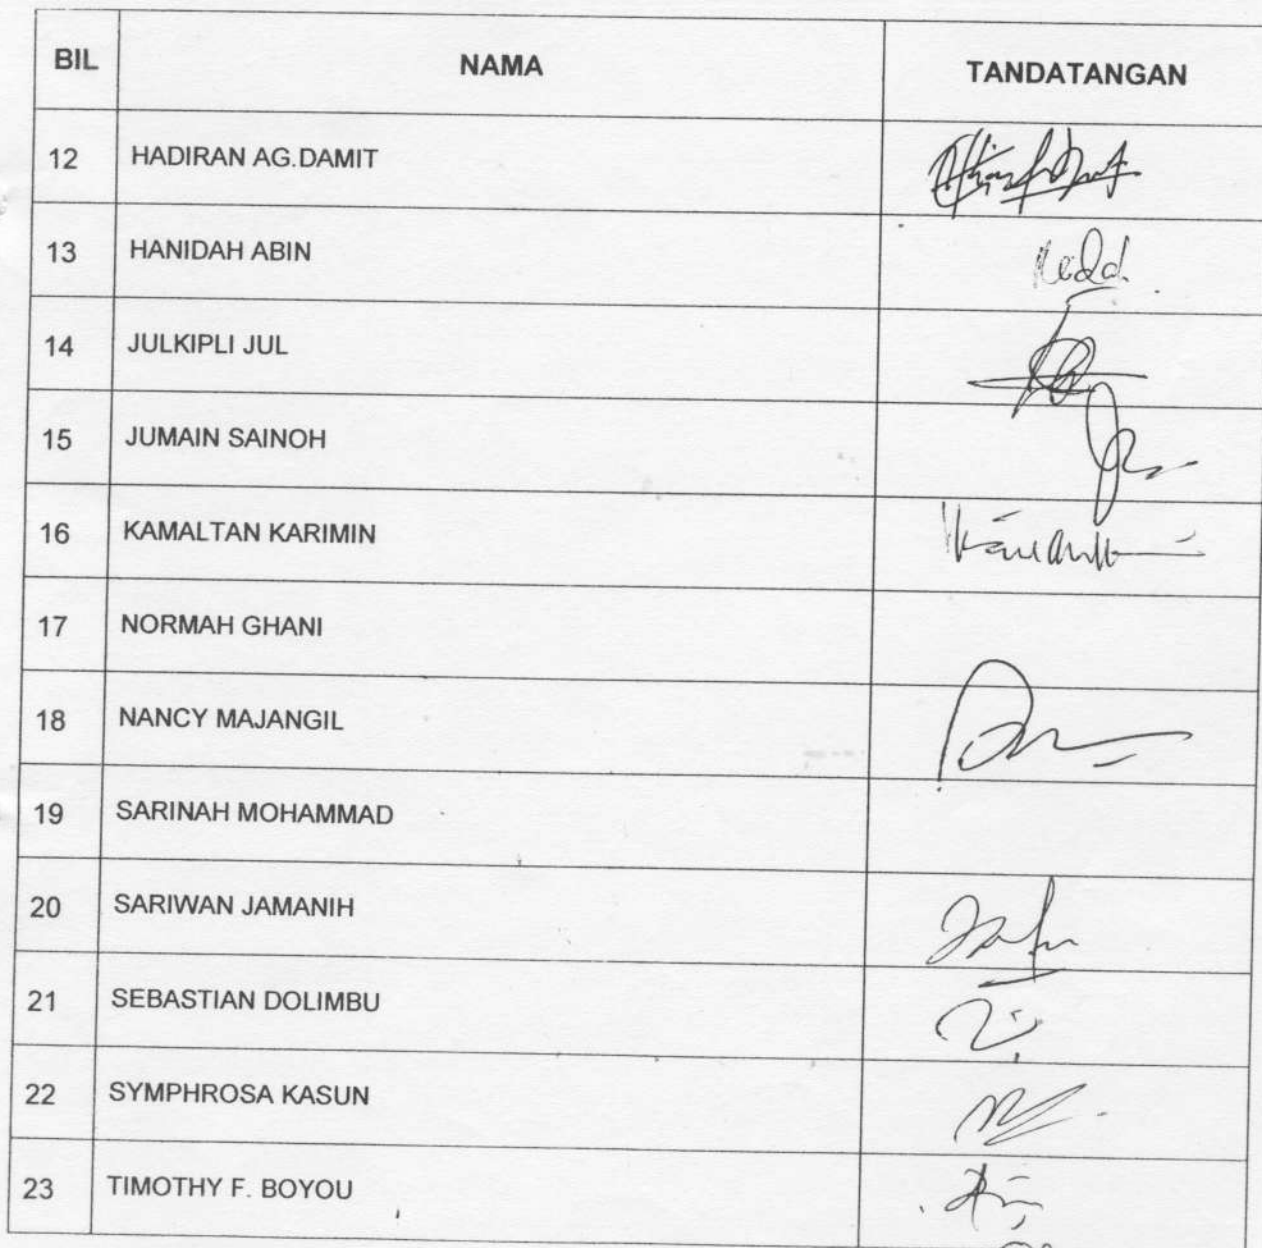 BIL NAMA TANDATANGAN
12 HADIRAN AG.DAMIT
13 HANIDAH ABIN
14 JULKIPLI JUL
15 JUMAIN SAINOH
16 KAMALTAN KARIMIN
17 NORMAH GHANI
18 NANCY MAJANGIL
19 SARINAH MOHAMMAD
20 SARIWAN JAMANIH
21 SEBASTIAN DOLIMBU
22 SYMPHROSA KASUN
23 TIMOTHY F. BOYOU